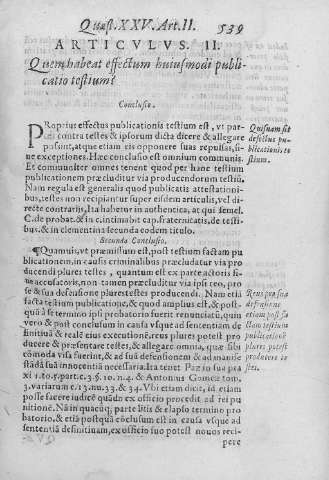 Quæst. XXV. Art. II. 539
ARTICVLVS II.
Quem habeat effectum huiusmodi publi-
catio testium?
Conclusio.
PRoprius effectus publicationis testium est, vt par-
tes contra testes & ipsorum dicta dicere & allegare
possunt, atque etiam eis opponere suas repulsas, si-
ue exceptiones. Hæc conclusio est omnium communis.
Et communiter omnes tenent quod per hanc testium
publicationem præcluditur via producendorum testiũ.
Nam regula est generalis quod publicatis attestationi-
bus, testes non recipiantur super eisdem articulis, vel di-
recte contrariis, ita habetur in authentica, at qui semel.
C. de probat. & in c. intimabit cap. fraternitatis, de testi-
bus, & in clementina secunda eodem titulo.
Quisnam sit
defectus pu-
blicationis te
stium.
Secunda Conclusio.
¶Quamuis, vt præmissum est, post testium factam pu
blicationem, in causis criminalibus præcludatur via pro-
ducendi plures testes, quantum est ex parte actoris si-
ue accusatoris, non tamen præcluditur via ipsi reo, pro
se & sua defensione plures testes producendi. Nam etiã
facta testium publicatione, & quod amplius est, & post-
quã à se termino ipsi probatorio fuerit renunciatũ, quin
vero & post conclusum in causa vsque ad sententiam de
finitiuã & reale eius executionẽ, reus plures potest pro
ducere & præsentare testes, & allegare omnia, quæ sibi
cõmoda visa fuerint, & ad suã defensionem & ad manife
stãdã suã innocentiã necessaria. Ita tenet Paz in sua pra
xi 1. to. 5. part. c. 3. §. 10. n. 4. & Antonius Gomez tom.
3. variarum c. 13. nu. 33. & 34. Vbi etiam dicit, id etiam
posse facere iudicẽ quãdo ex officio procedit ad rei pu
nitionẽ. Nã in quacũq; parte litis & elapso termino pro
batorio, & etiã postquã cõclusum est in causa vsque ad
sententiã definitiuam, ex officio suo potest nouos reci-
pere
Reus pro sua
defensione
etiam post fa
ctam testium
publicationẽ
plures potest
producere te
stes.